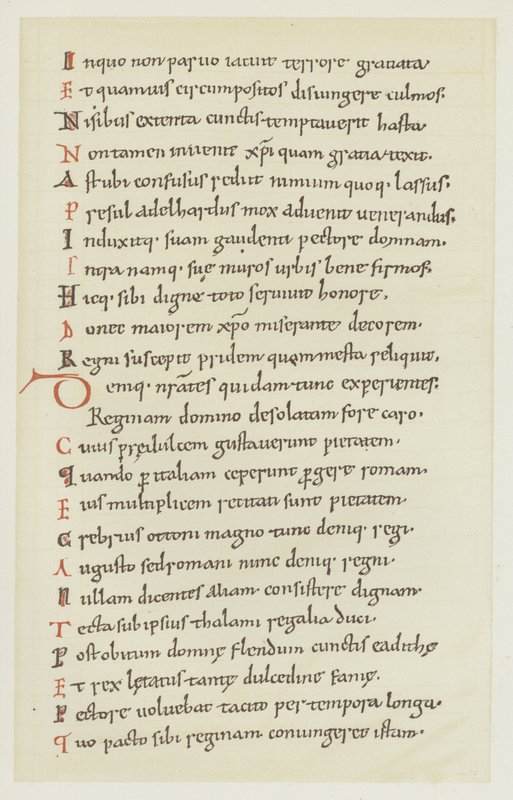 In quo non paruo iacuit terrore grauata
Et quamuis circumpositos disiungere culmos.
Nisibus extenta cunctis temptauerit hasta
Non tamen inuenit xp̄i quam gratia texit.
Ast ubi confusus rediit nimium quoq. lassus.
Presul adelhardus mox aduenit uenerandus.
Induxitq. suam gaudenti pectore domnam.
Intra namq. suę muros urbis bene firmos.
Hicq. sibi digne toto seruiuit honore.
Donec maiorem xp̄o miserante decorem.
Regni suscepit pridem quam mesta reliquit.
Deniq. nr̄ates quidam tunc experientes.
Reginam domino desolatam fore caro.
Cuius prędulcem gustauerunt pietatem.
Quando ꝑ italiam ceperunt ꝑgere romam.
Eius multiplicem recitati sunt pietatem.
Crebrius ottoni magno tunc deniq. regi.
Augusto sed romani nunc deniq. regni.
Nullam dicentes aliam consistere dignam.
Tecta sub ipsius thalami regalia duci.
Post obitum domnę flendum cunctis eadithę
Et rex lętatus tantę dulcedine famę.
Pectore uoluebat tacito per tempora longa.
Quo pacto sibi reginam coniungeret istam.